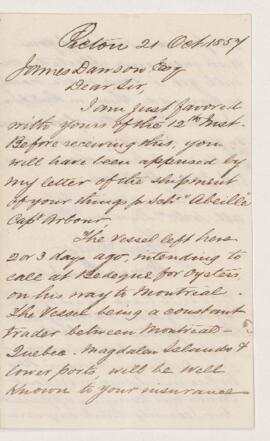 Pictou 21 Oct 1857
James Dawson Esq
Dear Sir,
I am just favored
with yours of the 12th Inst.
Before receiving this, you
will have been apprised by
my letter of the shipment
of your things p Schr "Abeille"
Capt Arbour.
The Vessel left here
2 or 3 days ago, intending to
call at Bedeque for Oysters
on his way to Montreal.
The Vessel being a constant
trader between Montreal -
Quebec - Magdalen Islands &
lower ports, will be well
known to your insurance